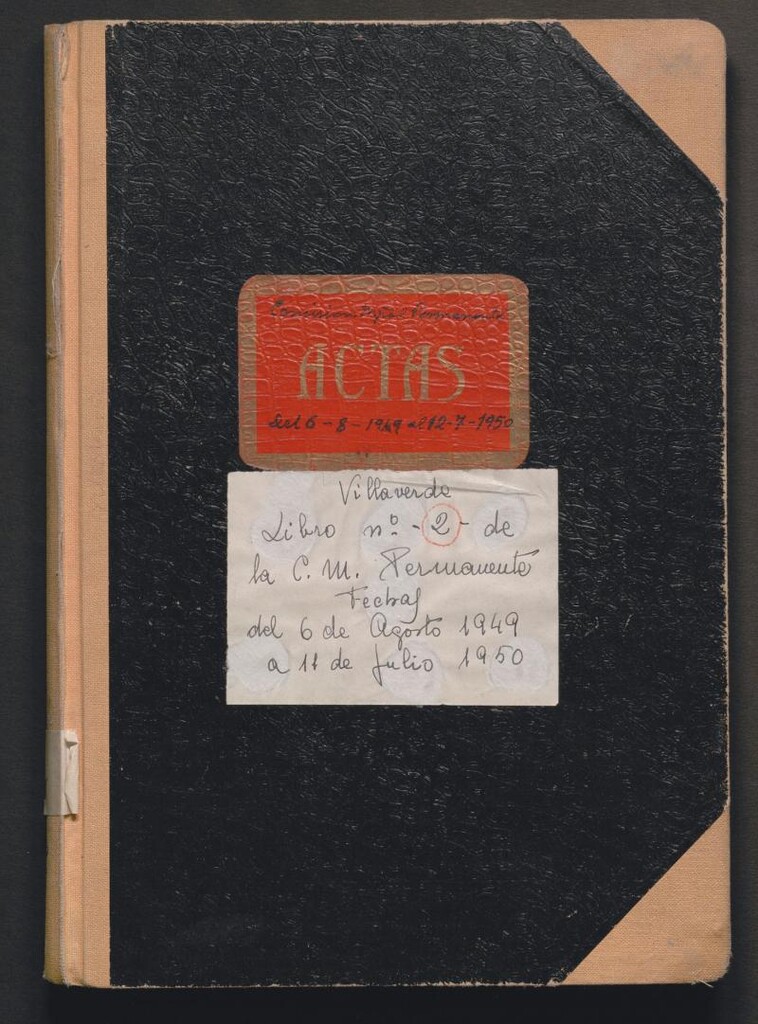 Comision Permanente
ACTAS
del 6-8-1949 al 12-7-1950
Villaverde
Libro nº -2- de
la C. M. Permanente
Fechas
del 6 de Agosto 1949
a 11 de Julio 1950